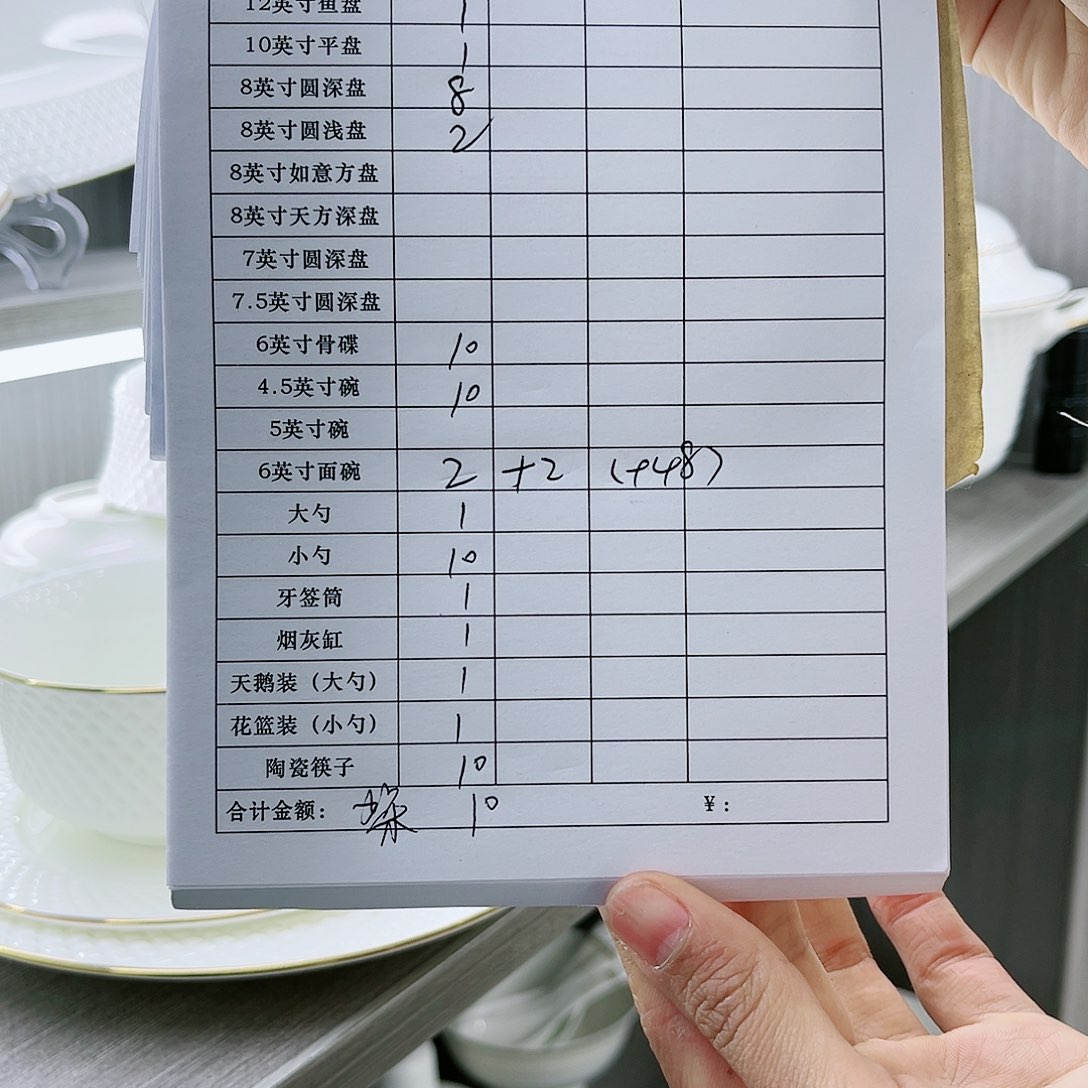 12英寸鱼盘 1
10英寸平盘 1
8英寸圆深盘 8
8英寸圆浅盘 2
8英寸如意方盘
8英寸天方深盘
7英寸圆深盘
7.5英寸圆深盘
6英寸骨碟 10
4.5英寸碗 10
5英寸碗
6英寸面碗 2 +2 (+48)
大勺 1
小勺 10
牙签筒 1
烟灰缸 1
天鹅装（大勺） 1
花篮装（小勺） 1
陶瓷筷子 10
合计金额： 10 ¥：